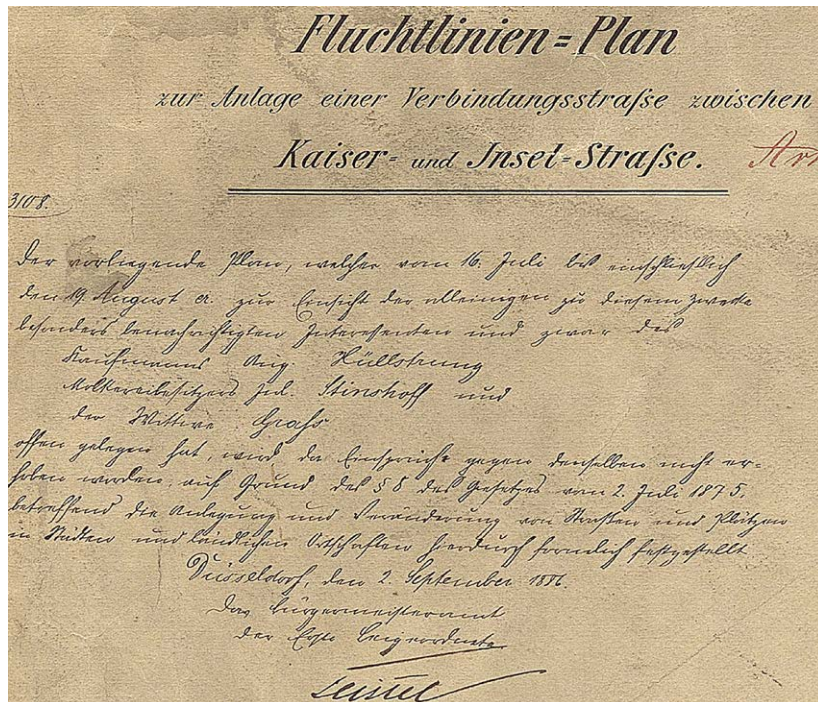 Fluchtlinien=Plan
zur Anlage einer Verbindungsstraſse zwischen
Kaiser= und Insel=Straſse. Ar
3108.
Der vorliegende Plan, welcher vom 16. Juli bis einschließlich
den 19. August cr. zur Einsicht der alleinigen zu diesem Zwecke
besonders benachrichtigten Interessenten und zwar des
Kaufmanns Aug. Hüllstrung
Molkereibesitzers Jul. Stinshoff und
der Wittwe Grafs
offen gelegen hat, wird da Einsprüche gegen denselben nicht er=
hoben worden, auf Grund des § 8 des Gesetzes vom 2. Juli 1875.
betreffend die Anlegung und Veränderung von Straßen und Plätzen
in Städten und ländlichen Ortschaften hierdurch förmlich festgestellt
Düsseldorf, den 2. September
Das Bürgermeisteramt
der Erste Beigeordnete